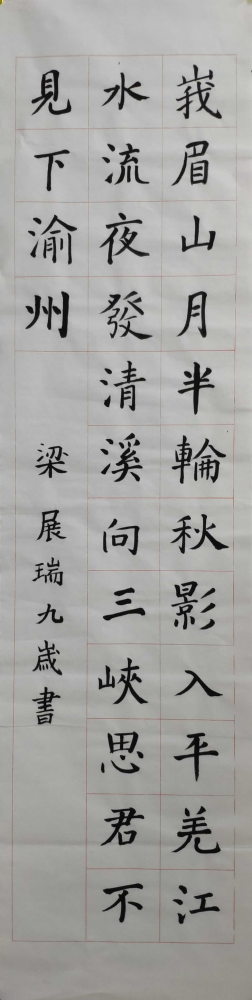 峩眉山月半輪秋影入平羌江
水流夜發清溪向三峽思君不
見下渝州
梁展瑞九歲書